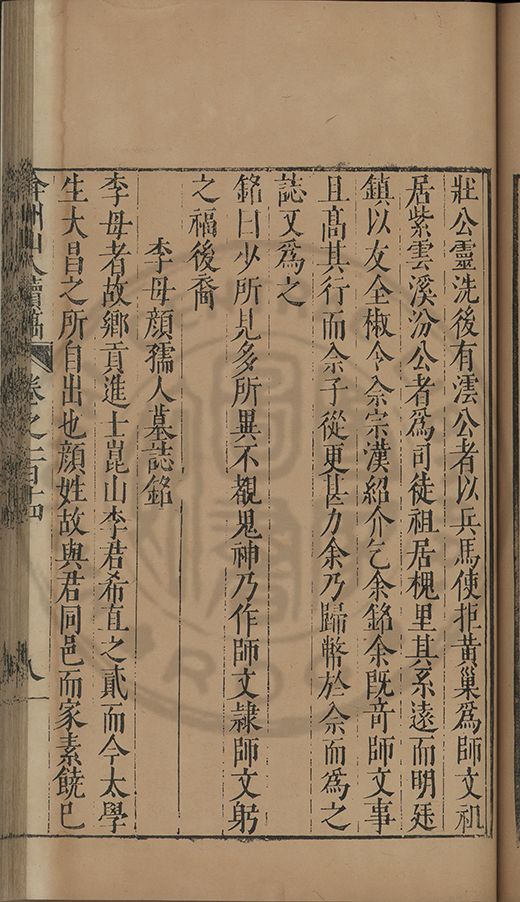 壯公靈洗後有澐公者以兵馬使拒黃巢爲師文祖
居紫雲溪汾公者爲司徒祖居槐里其系遠而明廷
鎮以友全椒令佘宗漢紹介乞余銘余旣奇師文事
且高其行而佘子從更甚力余乃歸幣於佘而爲之
誌文爲之
銘曰少所見多所異不覩鬼神乃作師文隸師文躬
之福後裔
李母顏孺人墓誌銘
李母者故鄉貢進士崑山李君希直之貳而今太學
生大昌之所自出也顏姓故與君同邑而家素饒已
弇州山人續稿 卷之一百十四 八